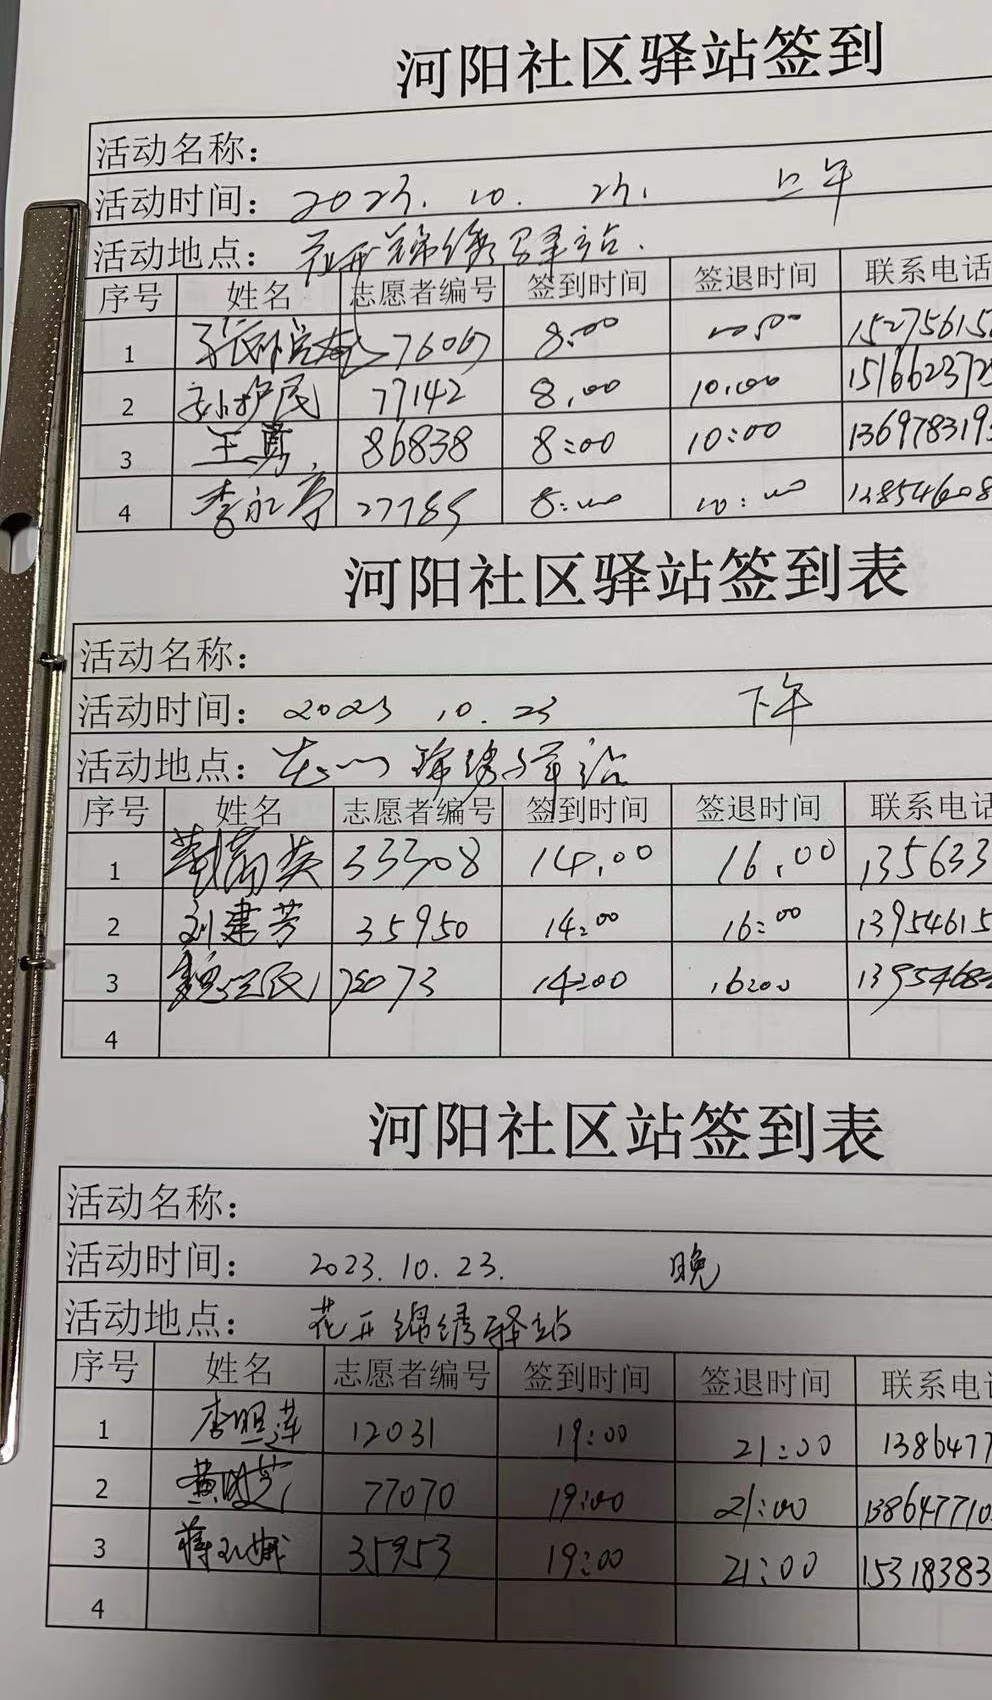 河阳社区驿站签到
活动名称：
活动时间： 2023. 10. 23. 上午
活动地点： 花开锦绣驿站.
序号 姓名 志愿者编号 签到时间 签退时间 联系电话
1 76067 8:00 10:00 15275615
2 孙护民 77142 8:00 10:00 151662372
3 王勇 86838 8:00 10:00 136978319
4 李永亭 27785 8:00 10:00 13854608
河阳社区驿站签到表
活动名称：
活动时间： 2023 10. 23 下午
活动地点： 锦绣驿站
序号 姓名 志愿者编号 签到时间 签退时间 联系电话
1 33308 14:00 16:00 135633
2 刘建芳 35950 14:00 16:00 13954615
3 75073 14:00 16:00 1395468
4
河阳社区站签到表
活动名称：
活动时间： 2023. 10. 23. 晚
活动地点： 花开锦绣驿站
序号 姓名 志愿者编号 签到时间 签退时间 联系电话
1 李明莲 12031 19:00 21:00 1386477
2 77070 19:00 21:00 138647710
3 35953 19:00 21:00 15318383
4